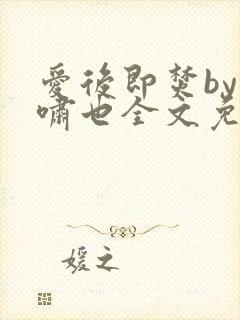 爱后即焚by
啸也全文免
媛之